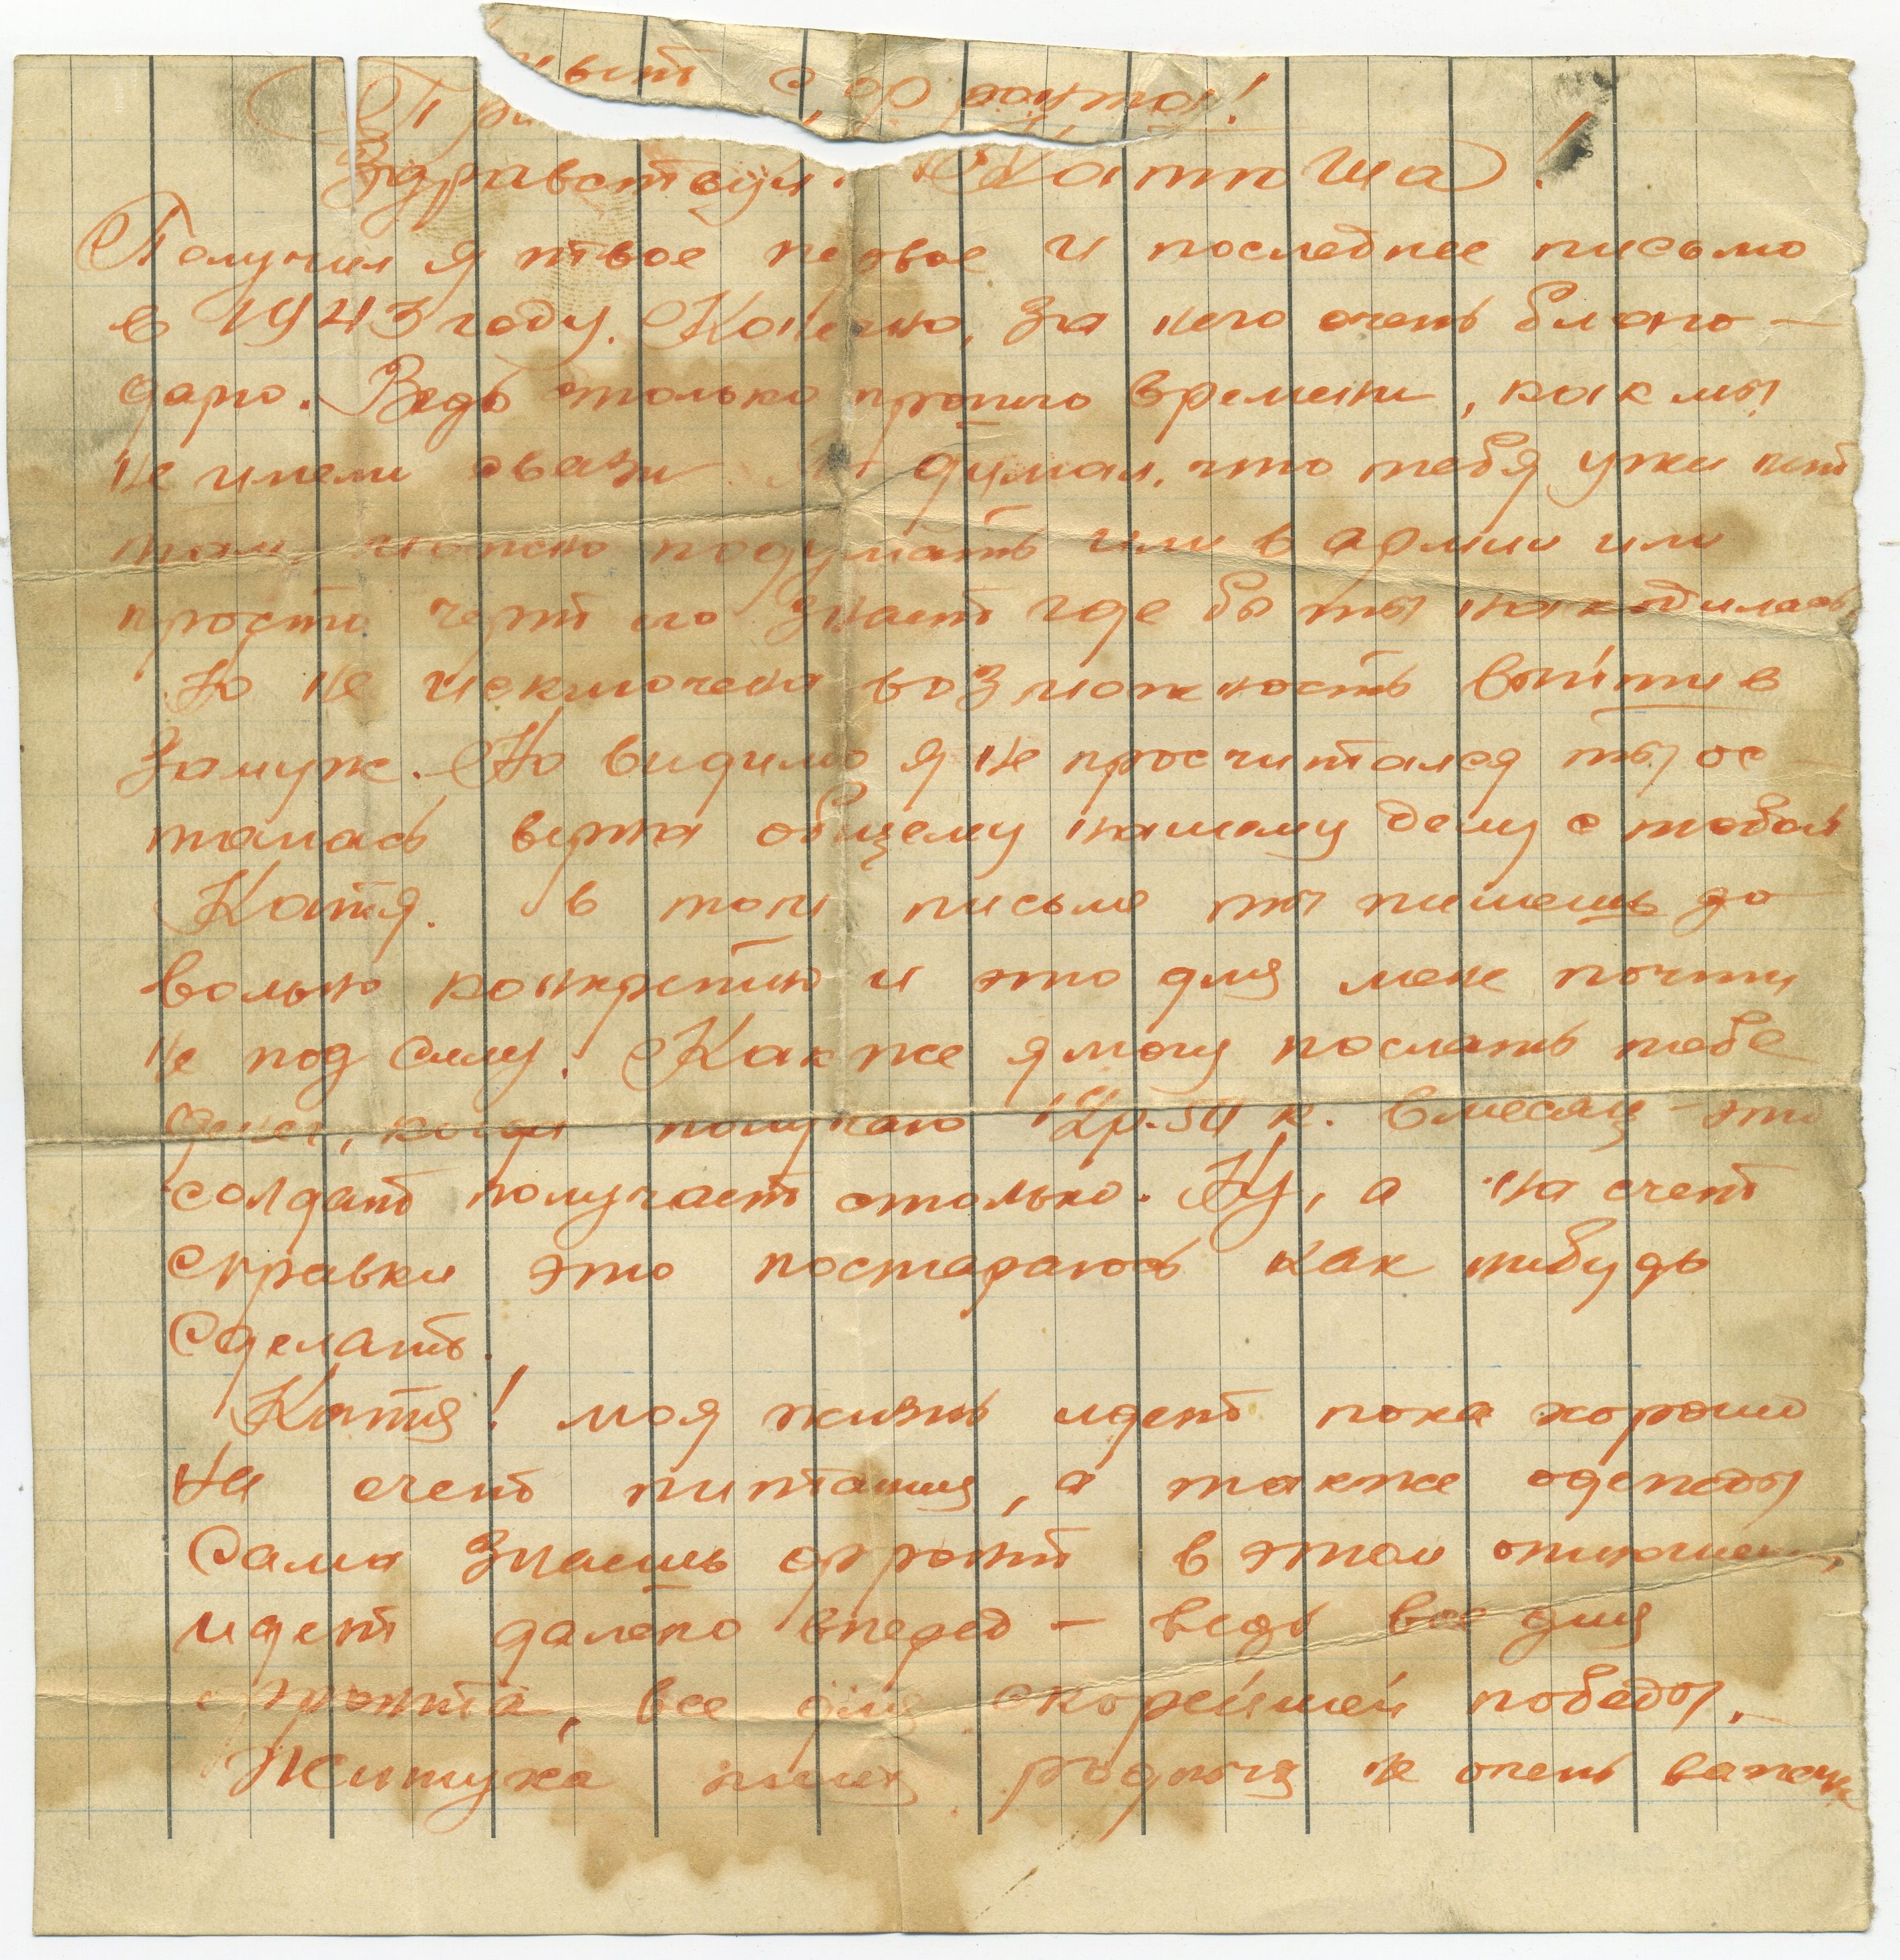 Привет с фронта!
Здравствуй Катюша!
Получил я твое первое и последнее письмо
в 1943 году. Конечно, за него очень благо-
дарю. Ведь столько прошло времени, как мы
не имели связи. Я думал, что тебя уже нет
там можно подумать или в армии или
просто черт его знает где бы ты находилась.
Но не исключена возможность выйти в
замуж. Но видимо я не просчитался ты ос
талась верна общему нашему делу с тобой
Катя. в том письме ты пишешь до
вольно конкретно и это для мене почти
не под силу. Как же я могу послать тебе
денег, когда получаю р. 50 к. в месяц - это
солдат получает столько. Ну, а на счет
справки это постараюсь как нибудь
сделать.
Катя! моя жизнь идет пока хорошо
на счет питания, а также одежды
Сама знаешь фронт в этом отношении,
идет далеко вперед - ведь все для
фронта, все для скорейшей победы.
Житуха родная не очень важная